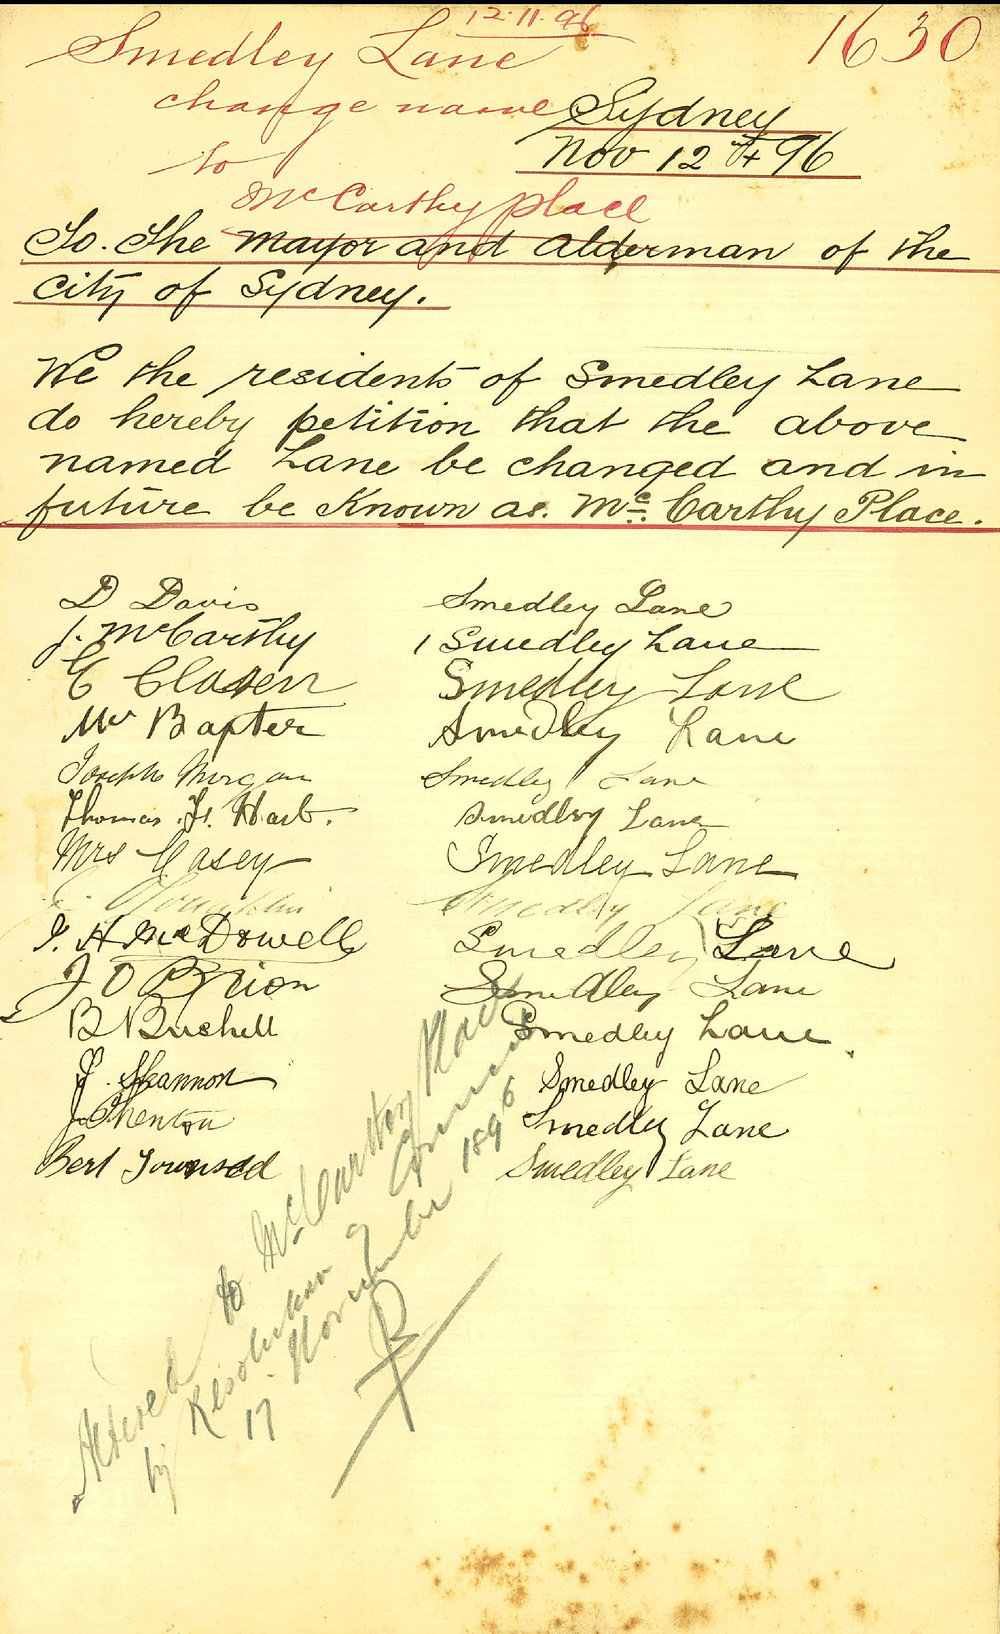 12.11.96
1630
Smedley Lane
change name
to
McCarthy place
Sydney
Nov 12th 96
To. The Mayor and Alderman of the
city of Sydney.
We the residents of Smedley Lane
do hereby petition that the above
named Lane be changed and in
future be Known as. Mc. Carthy Place.
D Davis Smedley Lane
J. McCarthy 1 Smedley Lane
C Closen Smedley Lane
Mr Bapter Smedley Lane
Joseph Morgan Smedley Lane
Thomas Hart. Smedley Lane
Mrs Casey Smedley Lane
Smedley Lane
J. H McDowell Smedley Lane
J O Brion Smedley Lane
B Bushell Smedley Lane
J. Shannon Smedley Lane
J. Shenton Smedley Lane
Bert Townsed Smedley Lane
Altered to McCarthy Place
by Resolution of Council
17 November 1896